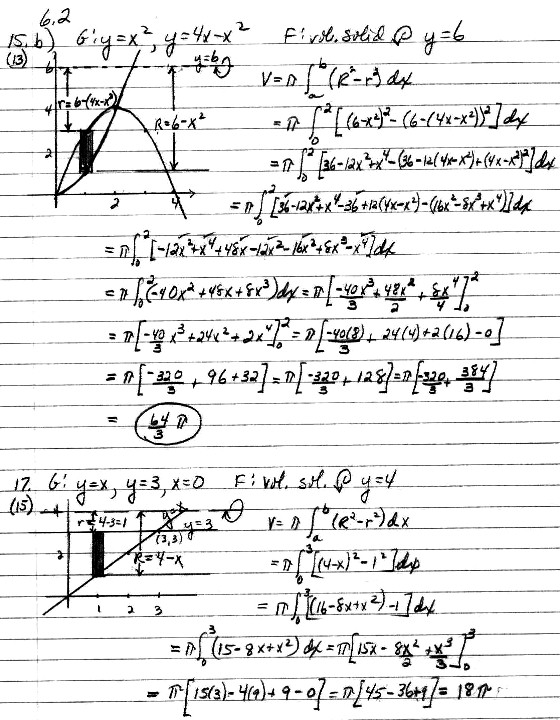 6.2
15. b) G: y=x², y=4x-x² F: vol. solid @ y=6
(13)
6 y=6
r=6-(4x-x²) R=6-x²
4
2
2 4
V = π∫ₐᵇ (R²-r²) dx
= π∫₀² [(6-x²)² - (6-(4x-x²))²] dx
= π∫₀² [36-12x²+x⁴-(36-12(4x-x²)+(4x-x²)²] dx
= π∫₀² [36-12x²+x⁴-36+12(4x-x²)-(16x²-8x³+x⁴)] dx
= π∫₀² [-12x²+x⁴+48x-12x²-16x²+8x³-x⁴] dx
= π∫₀² (-40x²+48x+8x³) dx = π[-40x³/3 + 48x²/2 + 8x⁴/4]₀²
= π[-40/3 x³+24x²+2x⁴]₀² = π[-40(8)/3 + 24(4)+2(16)-0]
= π[-320/3 + 96+32] = π[-320/3 + 128] = π[-320/3 + 384/3]
= 64/3 π
17. G: y=x, y=3, x=0 F: vol. sol. @ y=4
(15)
4
r=4-3=1 y=x y=3
(3,3)
2 R=4-x
1 2 3
V = π∫ₐᵇ (R²-r²) dx
= π∫₀³ [(4-x)²-1²] dx
= π∫₀³ [(16-8x+x²)-1] dx
= π∫₀³ (15-8x+x²) dx = π[15x - 8x²/2 + x³/3]₀³
= π[15(3)-4(9)+9-0] = π[45-36+9] = 18π